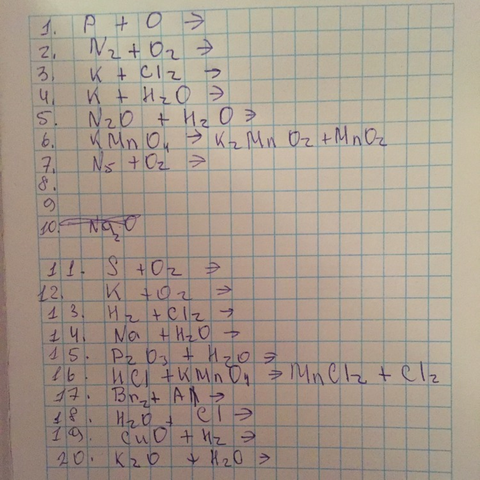 1. P + O →
2. N2 + O2 →
3. K + Cl2 →
4. K + H2O →
5. N2O + H2O →
6. KMnO4 → K2MnO2 + MnO2
7. N5 + O2 →
8.
9
10. Na2O
11. S + O2 →
12. K + O2 →
13. H2 + Cl2 →
14. Na + H2O →
15. P2O3 + H2O →
16. HCl + KMnO4 → MnCl2 + Cl2
17. Br2 + Al →
18. H2O + Cl →
19. CuO + H2 →
20. K2O + H2O →